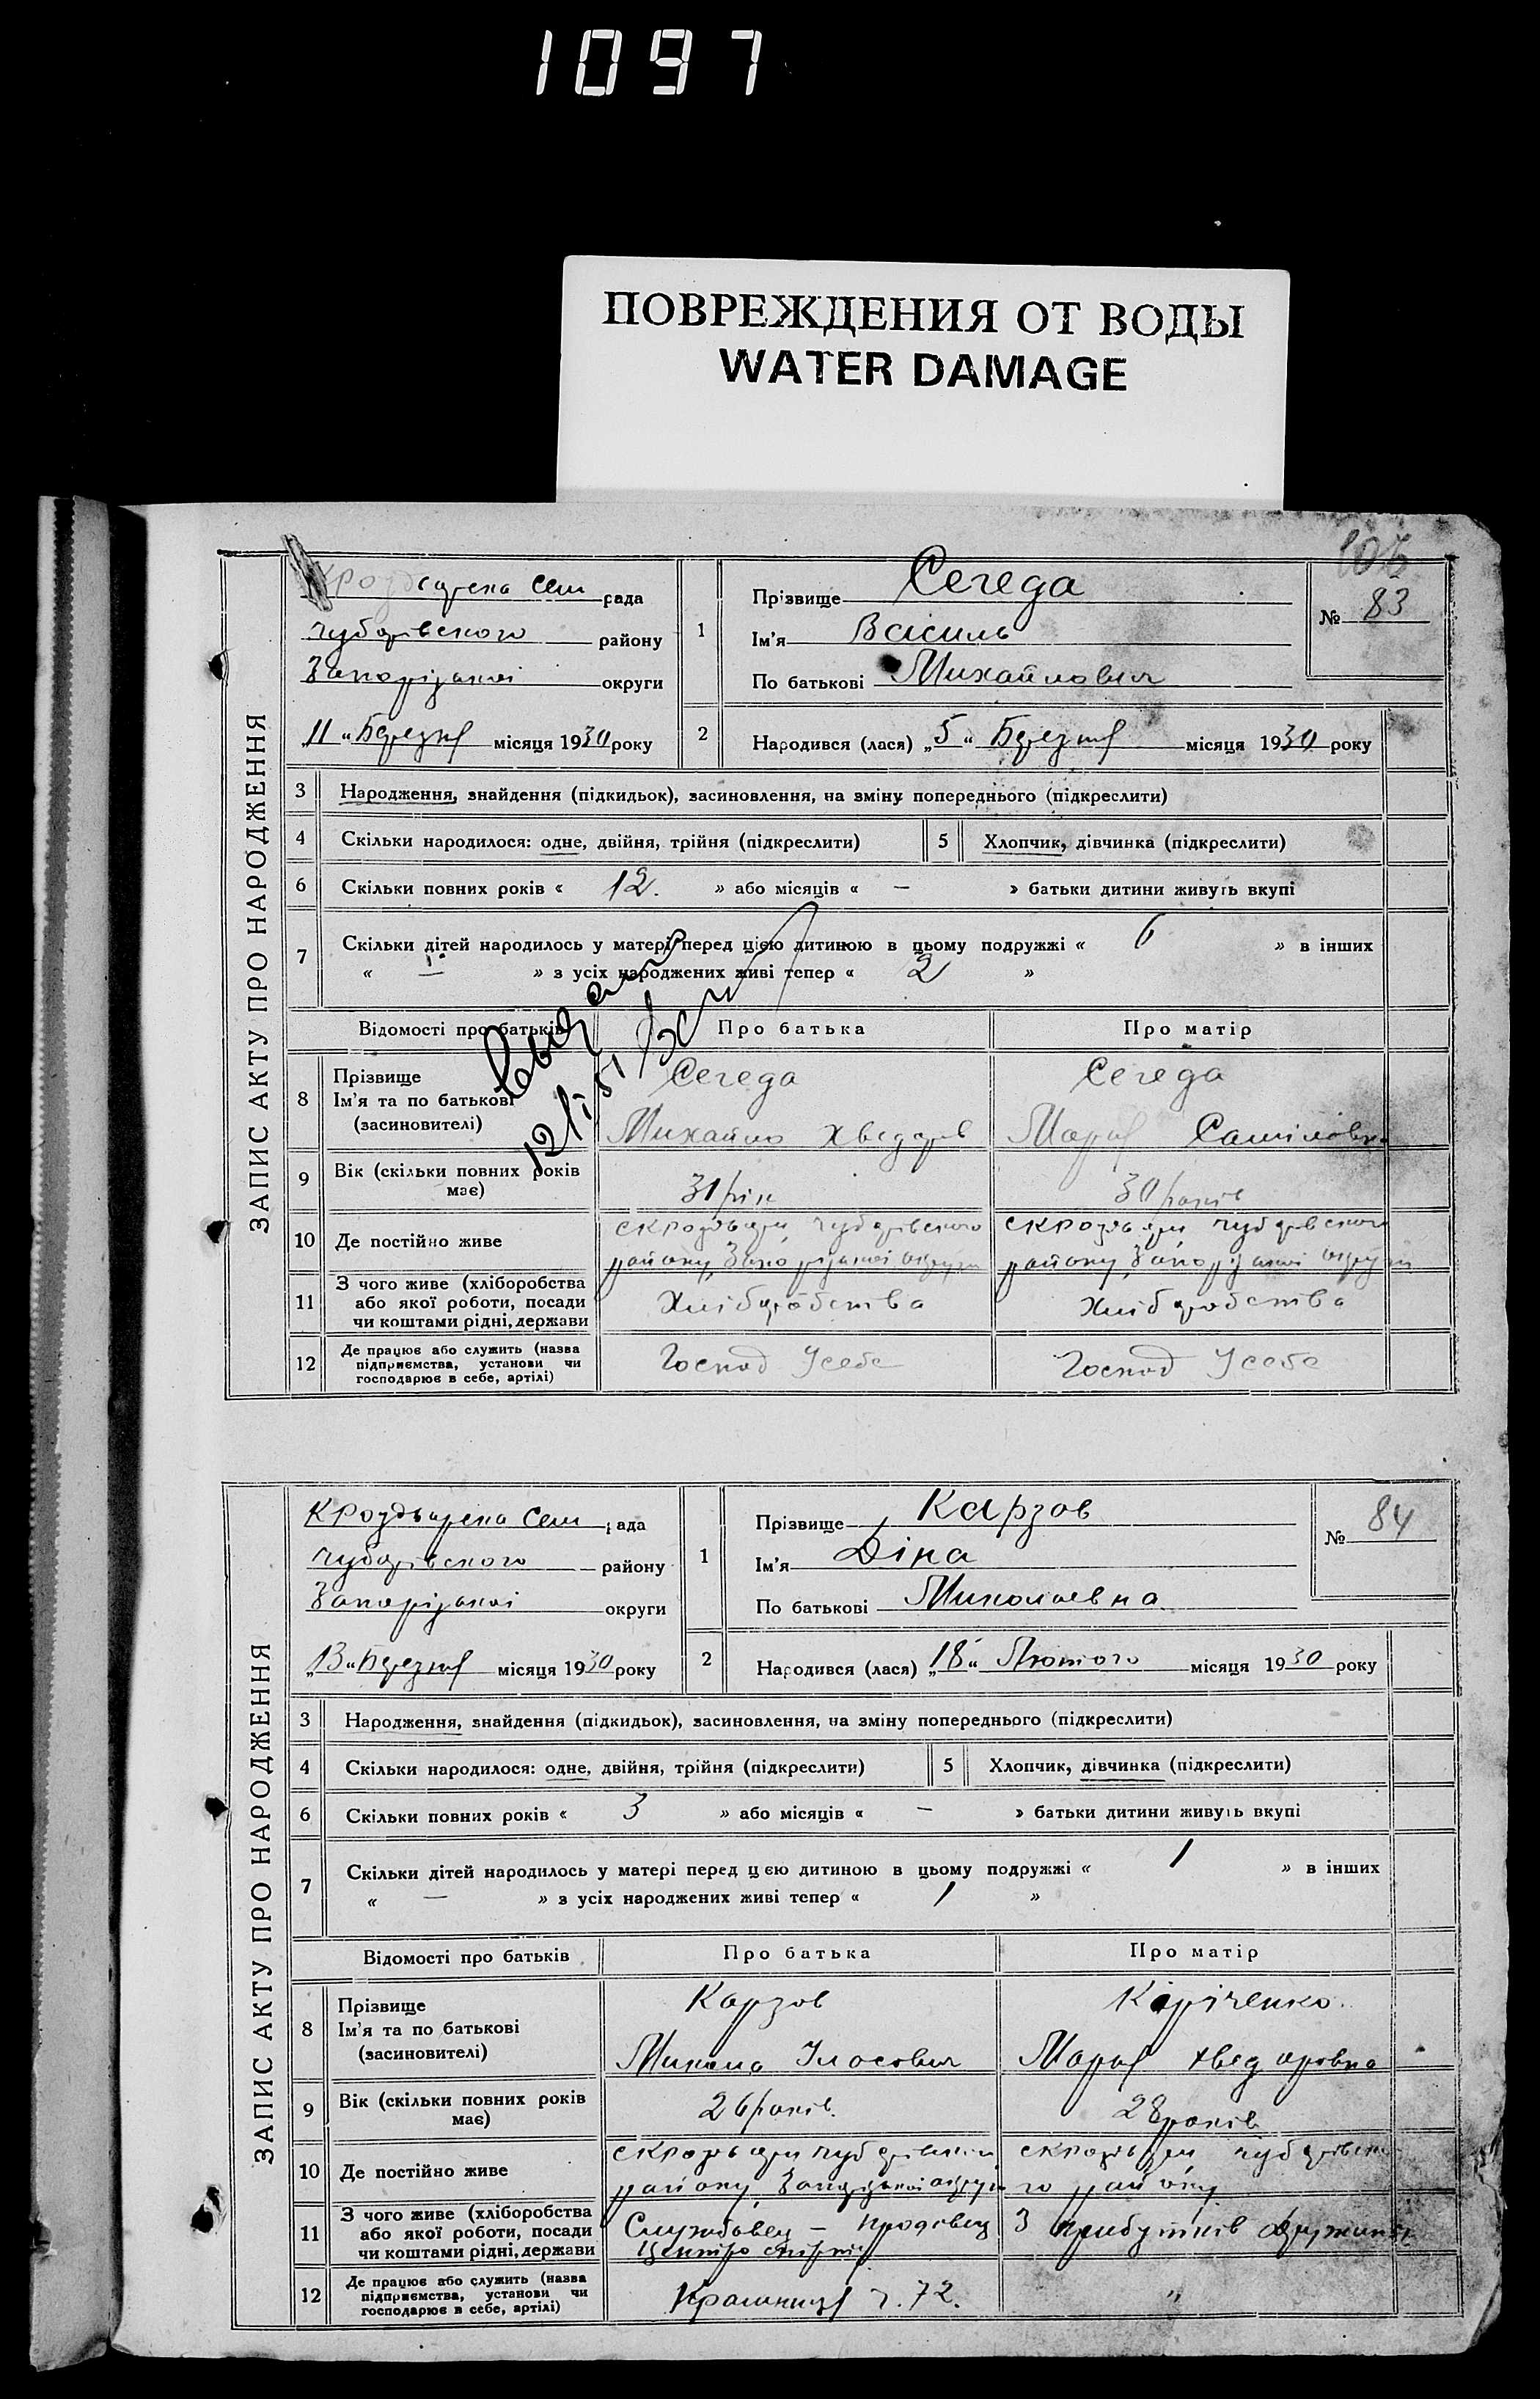 1097
ПОВРЕЖДЕНИЯ ОТ ВОДЫ
WATER DAMAGE
ЗАПИС АКТУ ПРО НАРОДЖЕННЯ
рада
Чубарівского району
Запорізької округи
„11“ Березня місяця 1930 року
1
Прізвище Сегеда
Ім'я Василь
По батькові Михайлович
№ 83
2
Народився (лася) „5“ Березня місяця 1930 року
3 Народження, знайдення (підкидьок), засиновлення, на зміну попереднього (підкреслити)
4 Скільки народилося: одне, двійня, трійня (підкреслити) 5 Хлопчик, дівчинка (підкреслити)
6 Скільки повних років « 12. » або місяців « — » батьки дитини живуть вкупі
7 Скільки дітей народилось у матері перед цією дитиною в цьому подружжі « 6 » в інших
« — » з усіх народжених живі тепер « 2 »
Відомості про батьків Про батька Про матір
8 Прізвище
Ім'я та по батькові
(засиновителі)
Сегеда
Михайло Хведоров
Сегеда
Мария
9 Вік (скільки повних років
має)
31 рік
30 років
10 Де постійно живе
Чубарівского
району, Запорізької округи
Чубарівского
району, Запорізької округи
11 З чого живе (хліборобства
або якої роботи, посади
чи коштами рідні, держави
Хліборобства
Хліборобства
12 Де працює або служить (назва
підприємства, установи чи
господарює в себе, артілі)
Господ У себе
Господ У себе
ЗАПИС АКТУ ПРО НАРОДЖЕННЯ
рада
Чубарівского району
Запорізької округи
„13“ Березня місяця 1930 року
1
Прізвище Карзов
Ім'я Діна
По батькові Миколаевна
№ 84
2
Народився (лася) „18“ Лютого місяця 1930 року
3 Народження, знайдення (підкидьок), засиновлення, на зміну попереднього (підкреслити)
4 Скільки народилося: одне, двійня, трійня (підкреслити) 5 Хлопчик, дівчинка (підкреслити)
6 Скільки повних років « 3 » або місяців « — » батьки дитини живуть вкупі
7 Скільки дітей народилось у матері перед цею дитиною в цьому подружжі « 1 » в інших
« — » з усіх народжених живі тепер « 1 »
Відомості про батьків Про батька Про матір
8 Прізвище
Ім'я та по батькові
(засиновителі)
Карзов
Микола Власович
Кіріченко.
Мария Хведоровна
9 Вік (скільки повних років
має)
26 років.
28 років
10 Де постійно живе
району, Запорізької округи
району
11 З чого живе (хліборобства
або якої роботи, посади
чи коштами рідні, держави
Службовец — продавец
З прибутків
12 Де працює або служить (назва
підприємства, установи чи
господарює в себе, артілі)
Крамниця ч. 72.
"